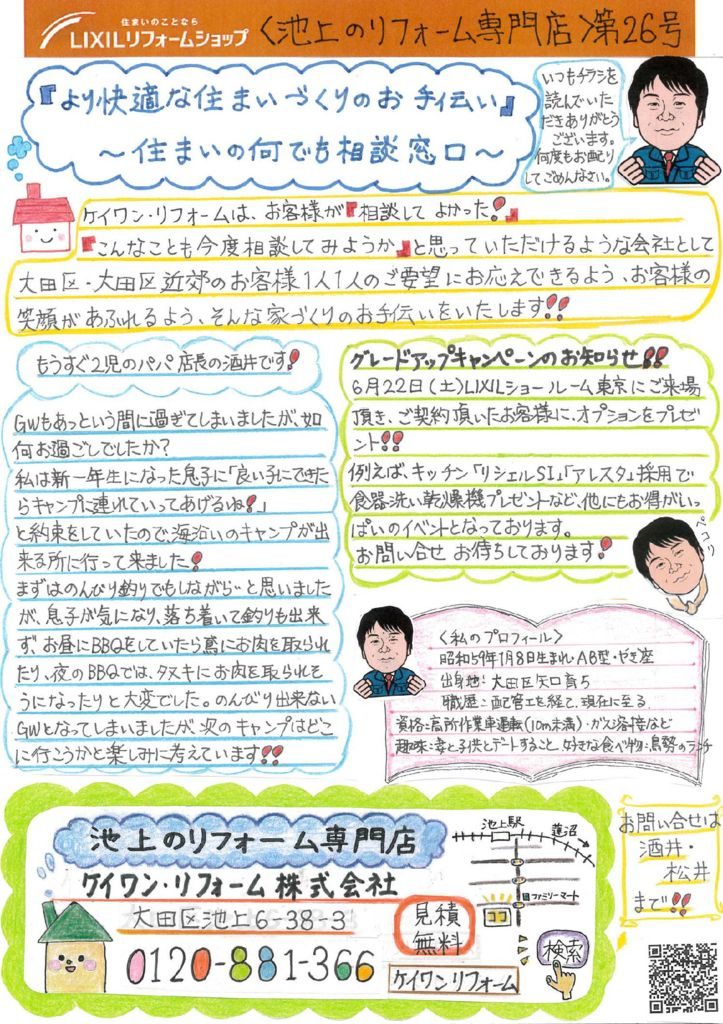 住まいのことなら
LIXILリフォームショップ
〈池上のリフォーム専門店〉第26号
『より快適な住まいづくりのお手伝い』
～住まいの何でも相談窓口～
いつもチラシを
読んでいた
だきありがとう
ございます。
何度もお配り
してごめんなさい。
ケイワン・リフォームは、お客様が『相談して よかった!』
『こんなことも今度相談してみようか』と思っていただけるような会社として
大田区・大田区近郊のお客様1人1人のご要望にお応えできるよう、お客様の
笑顔があふれるよう、そんな家づくりのお手伝いをいたします!!
もうすぐ2児のパパ 店長の酒井です!
GWもあっという間に過ぎてしまいましたが、如
何お過ごしでしたか?
私は新一年生になった息子に「良い子にできた
らキャンプに連れていってあげるね!」
と約束をしていたので、海沿いのキャンプが出
来る所に行って来ました!
まずはのんびり釣りでもしながら…と思いました
が、息子が気になり、落ち着いて釣りも出来
ず、お昼にBBQをしていたら鳶にお肉を取られ
たり、夜のBBQでは、タヌキにお肉を取られそ
うになったりと大変でした。のんびり出来ない
GWとなってしまいましたが、次のキャンプはどこ
に行こうかと楽しみに考えています!!
グレードアップキャンペーンのお知らせ!!
6月22日(土)LIXILショールーム東京にご来場
頂き、ご契約頂いたお客様に、オプションをプレゼ
ント!!
例えば、キッチン「リシェルSI」「アレスタ」採用で
食器洗い乾燥機プレゼントなど、他にもお得がいっ
ぱいのイベントとなっております。
お問い合せ お待ちしております!
ペコリ
〈私のプロフィール〉
昭和59年1月8日生まれ・AB型・やぎ座
出身地:大田区矢口育ち
職歴:配管工を経て、現在に至る
資格:高所作業車運転(10m未満)・ガス溶接など
趣味:妻と子供とデートすること 好きな食べ物:鳥勢のランチ
池上のリフォーム専門店
ケイワン・リフォーム株式会社
大田区池上6-38-3
0120-881-366
見積
無料
ケイワンリフォーム
検索
池上駅
蓮沼
ファミリーマート
ココ
お問い合せは
酒井・
松井
まで!!